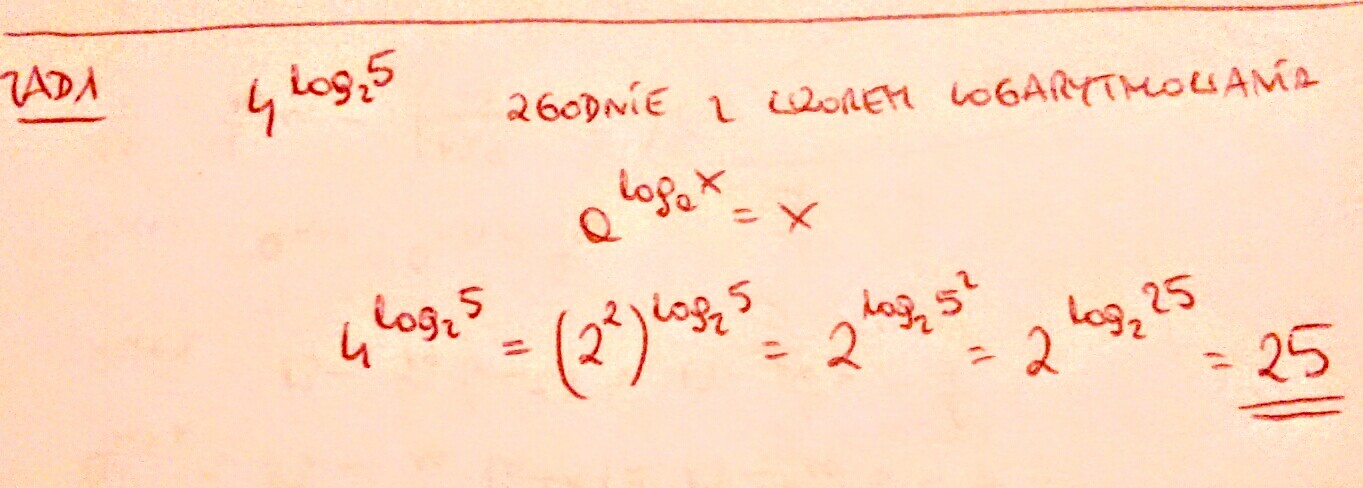 ZAD1 4^{log_2 5} ZGODNIE Z WZOREM LOGARYTMOWANIA
a^{log_a x} = x
4^{log_2 5} = (2^2)^{log_2 5} = 2^{log_2 5^2} = 2^{log_2 25} = 25